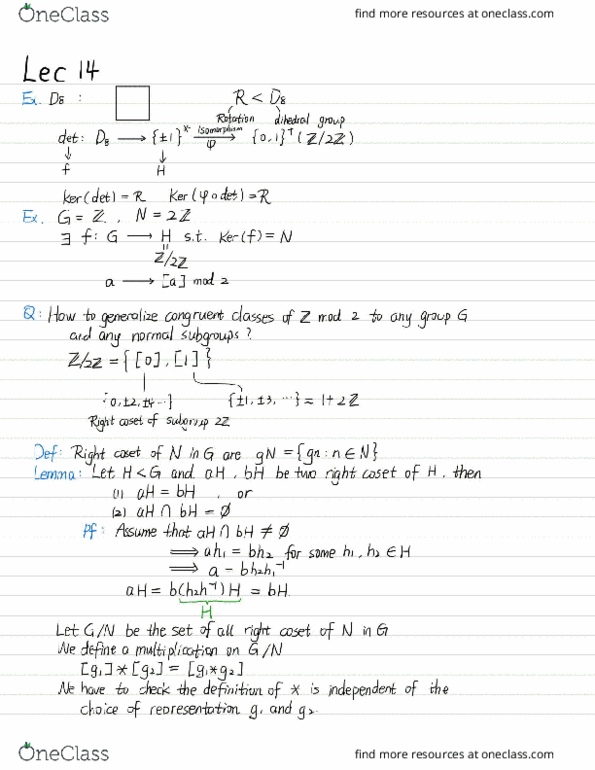 OneClass
find more resources at oneclass.com
Lec 14
Ex. D8 :
R < D8
Rotation dihedral group
det: D8 ⟶ {±1}^x isomorphism ⟶ φ {0,1}^+ (ℤ/2ℤ)
↓ ↓
f H
ker(det) = R Ker(φ∘det) = R
Ex. G = ℤ. , N = 2ℤ
∃ f: G ⟶ H s.t. Ker(f) = N
ℤ/2ℤ
a ⟶ [a] mod 2
Q: How to generalize congruent classes of ℤ mod 2 to any group G
and any normal subgroups?
ℤ/2ℤ = { [0] , [1] }
{0, ±2, ±4 ···} {±1, ±3, ···} = 1 + 2ℤ
Right coset of subgroup 2ℤ
Def: Right coset of N in G are gN = {gn : n ∈ N}
Lemma: Let H < G and aH, bH be two right coset of H, then
(1) aH = bH , or
(2) aH ∩ bH = ∅
Pf: Assume that aH ∩ bH ≠ ∅
⟹ ah1 = bh2 for some h1, h2 ∈ H
⟹ a = bh2h1^-1
aH = b(h2h^-1)H = bH.
H
Let G/N be the set of all right coset of N in G
We define a multiplication on G/N
[g1] * [g2] = [g1 * g2]
We have to check the definition of * is independent of the
choice of representation g1 and g2.
OneClass
find more resources at oneclass.com